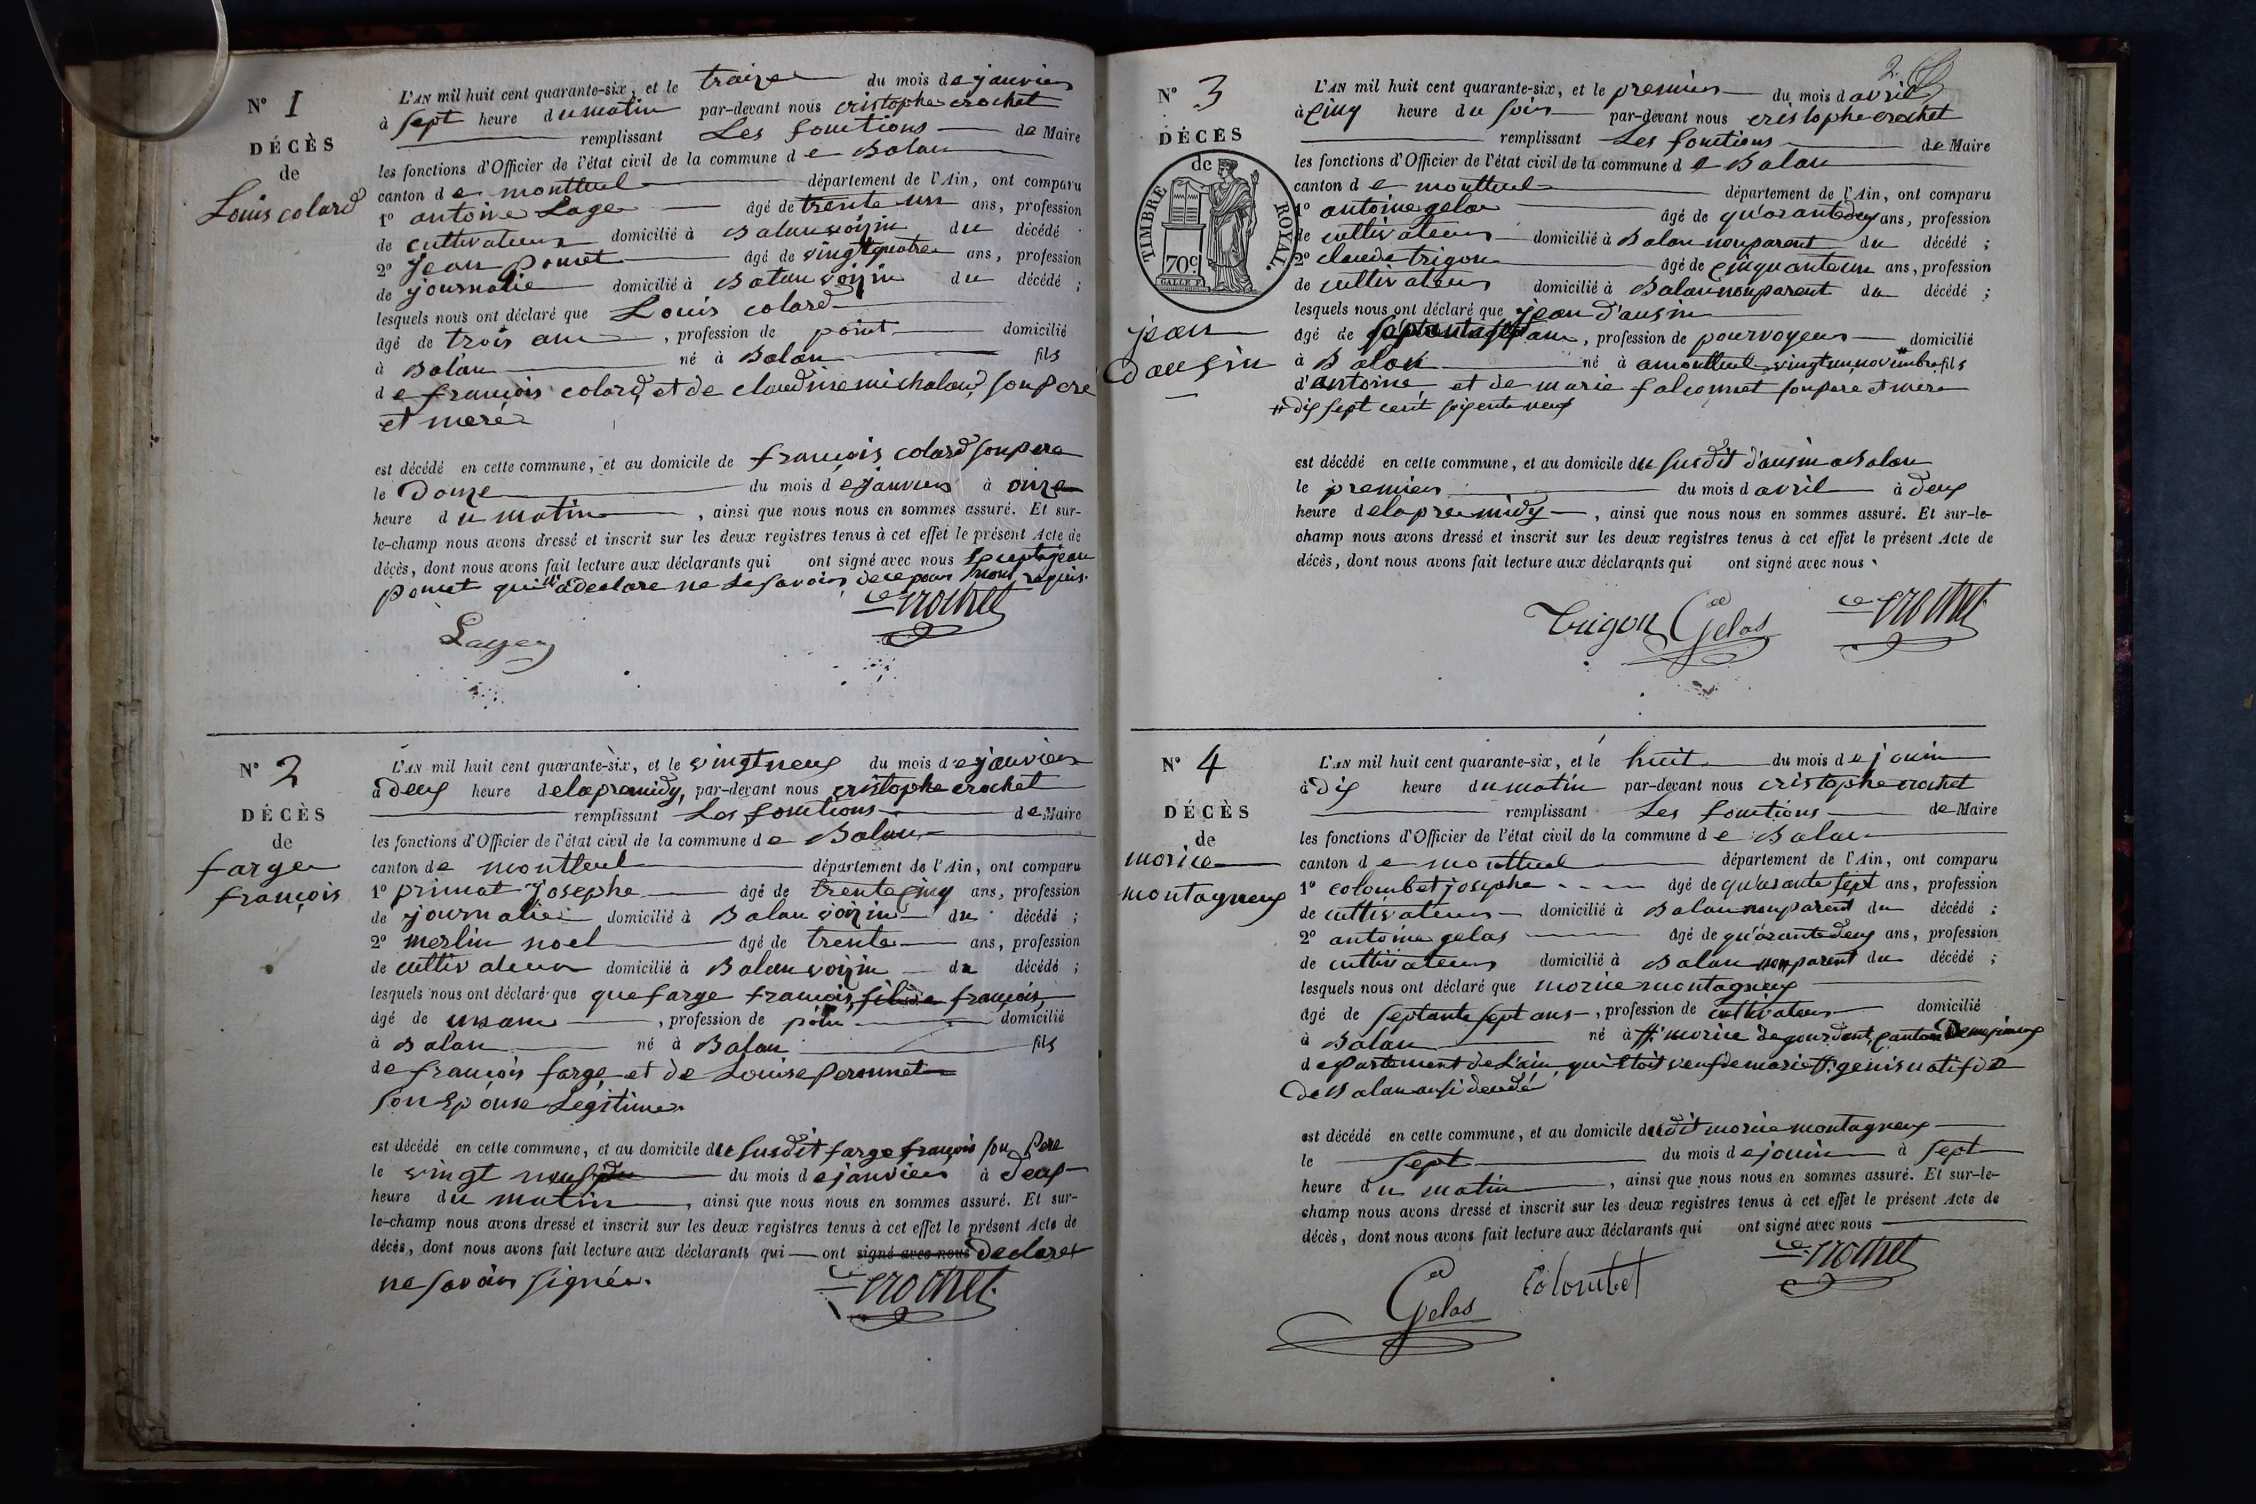 N° 1
DÉCÈS
de
Louis colard
L'AN mil huit cent quarante-six, et le traize du mois de janvier
à sept heure du matin par-devant nous cristophe crochet
remplissant Les fonctions de Maire
les fonctions d'Officier de l'état civil de la commune de Balan
canton de montluel département de l'Ain, ont comparu
1° antoine Lage âgé de trente un ans, profession
de cultivateur domicilié à Balan voizin du décédé
2° Jean pomet âgé de vingtquatre ans, profession
de journalie domicilié à Balan voizin du décédé ;
lesquels nous ont déclaré que Louis colard
âgé de trois ans, profession de point domicilié
à Balan né à Balan fils
de françois colard, et de claudine michaland, son pere
et mere
est décédé en cette commune, et au domicile de françois colard son pere
le Douze du mois de janvier à onze
heure du matin, ainsi que nous nous en sommes assuré. Et sur-
le-champ nous avons dressé et inscrit sur les deux registres tenus à cet effet le présent Acte de
décès, dont nous avons fait lecture aux déclarants qui ont signé avec nous Exceptajean
pomet qui a declare ne Le savoir, de ce pour nous requis.
ce crochet
Lage
N° 2
DÉCÈS
de
farge
françois
L'AN mil huit cent quarante-six, et le vingtneuf du mois de janvier
à deux heure delapramidy, par-devant nous cristophe crochet
remplissant Les fonctions de Maire
les fonctions d'Officier de l'état civil de la commune de Balan
canton de montluel département de l'Ain, ont comparu
1° primat Josephe âgé de trentecinq ans, profession
de journalier domicilié à Balan voizin du décédé ;
2° merlin noel âgé de trente ans, profession
de cultivateur domicilié à Balan voizin du décédé ;
lesquels nous ont déclaré que que farge françois, fils de françois,
âgé de un an, profession de poin domicilié
à Balan né à Balan fils
de françois farge, et de Louise peronnet
son Epouse Legitime.
est décédé en cette commune, et au domicile du susdit farge françois son Pere
le vingt neuf du du mois de janvier à deux
heure du matin, ainsi que nous nous en sommes assuré. Et sur-
le-champ nous avons dressé et inscrit sur les deux registres tenus à cet effet le présent Acte de
décès, dont nous avons fait lecture aux déclarants qui ont signé avec nous declaret
ne savoir signér.
ce crochet
2
N° 3
DÉCÈS
de
TIMBRE ROYAL.
70c
GALLE F.
jean
Dausin
L'AN mil huit cent quarante-six, et le premier du mois d avril
à cinq heure du soir par-devant nous cristophe crochet
remplissant Les fonctions de Maire
les fonctions d'Officier de l'état civil de la commune de Balan
canton de montluel département de l'Ain, ont comparu
1° antoine gelas âgé de qu'arantedeux ans, profession
de cultivateur domicilié à Balan nonparent du décédé ;
2° claude trigon âgé de cinquanteun ans, profession
de cultivateur domicilié à Balan nonparent du décédé ;
lesquels nous ont déclaré que jean d'ausin
âgé de septantesept ans, profession de pourvoyeur domicilié
à Balan né à amontluel, vingtunnovembre # fils
d'antoine et de marie falconnet son pere et mere
# dix sept cent soixente neuf
est décédé en cette commune, et au domicile du susdit d'ausin a Balan
le premier du mois d avril à deux
heure delapremidy, ainsi que nous nous en sommes assuré. Et sur-le-
champ nous avons dressé et inscrit sur les deux registres tenus à cet effet le présent Acte de
décès, dont nous avons fait lecture aux déclarants qui ont signé avec nous
Trigon Gelas ce crochet
N° 4
DÉCÈS
de
morice
montagneux
L'AN mil huit cent quarante-six, et le huit du mois de jouin
à dix heure du matin par-devant nous cristophe crochet
remplissant Les fonctions de Maire
les fonctions d'Officier de l'état civil de la commune de Balan
canton de montluel département de l'Ain, ont comparu
1° colombet josephe âgé de qu'arante sept ans, profession
de cultivateur domicilié à Balan nonparent du décédé ;
2° antoine gelas âgé de qu'arantedeux ans, profession
de cultivateur domicilié à Balan nonparent du décédé ;
lesquels nous ont déclaré que morice montagneux
âgé de septante sept ans, profession de cultivateur domicilié
à Balan né à St. morice de gourdant, canton De meximieux
departement de L'ain, qu'il toit veuf de marie St. genis natif de
de Balan ausi decedé
est décédé en cette commune, et au domicile dudit morice montagneux
le sept du mois de jouin à sept
heure du matin, ainsi que nous nous en sommes assuré. Et sur-le-
champ nous avons dressé et inscrit sur les deux registres tenus à cet effet le présent Acte de
décès, dont nous avons fait lecture aux déclarants qui ont signé avec nous
Gelas Colombet ce crochet